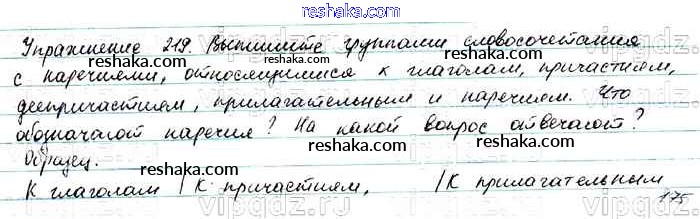 reshaka.com
Упражнение 219. Выпишите группами словосочетания
reshaka.com
с наречиями, относящимися к глаголам, причастиям,
деепричастиям, прилагательным и наречиям. Что
обозначают наречия? На какой вопрос отвечают?
reshaka.com reshaka.com
Образец.
К глаголам | К причастиям, | К прилагательным
reshaka.com
175